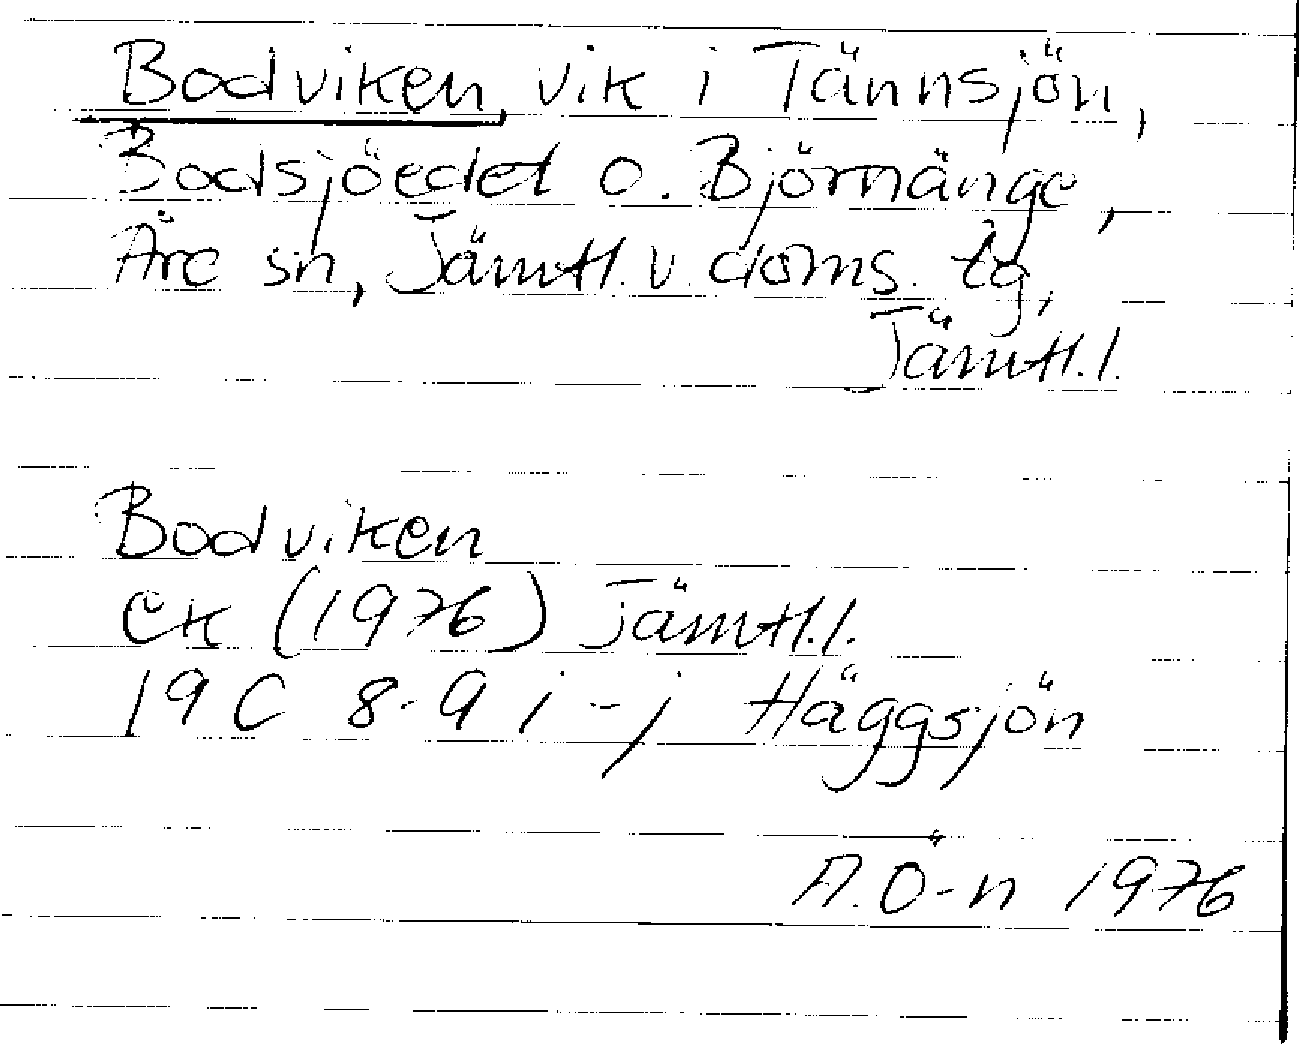 Bodviken, vik i Tännsjön,
Bodsjöedet o. Björnänge,
Åre sn, Jämtl. v. doms. tg,
Jämtl. l.
Bodviken
EK (1976) Jämtl. l.
19 C 8-9 i-j Häggsjön
A. Ö-n 1976